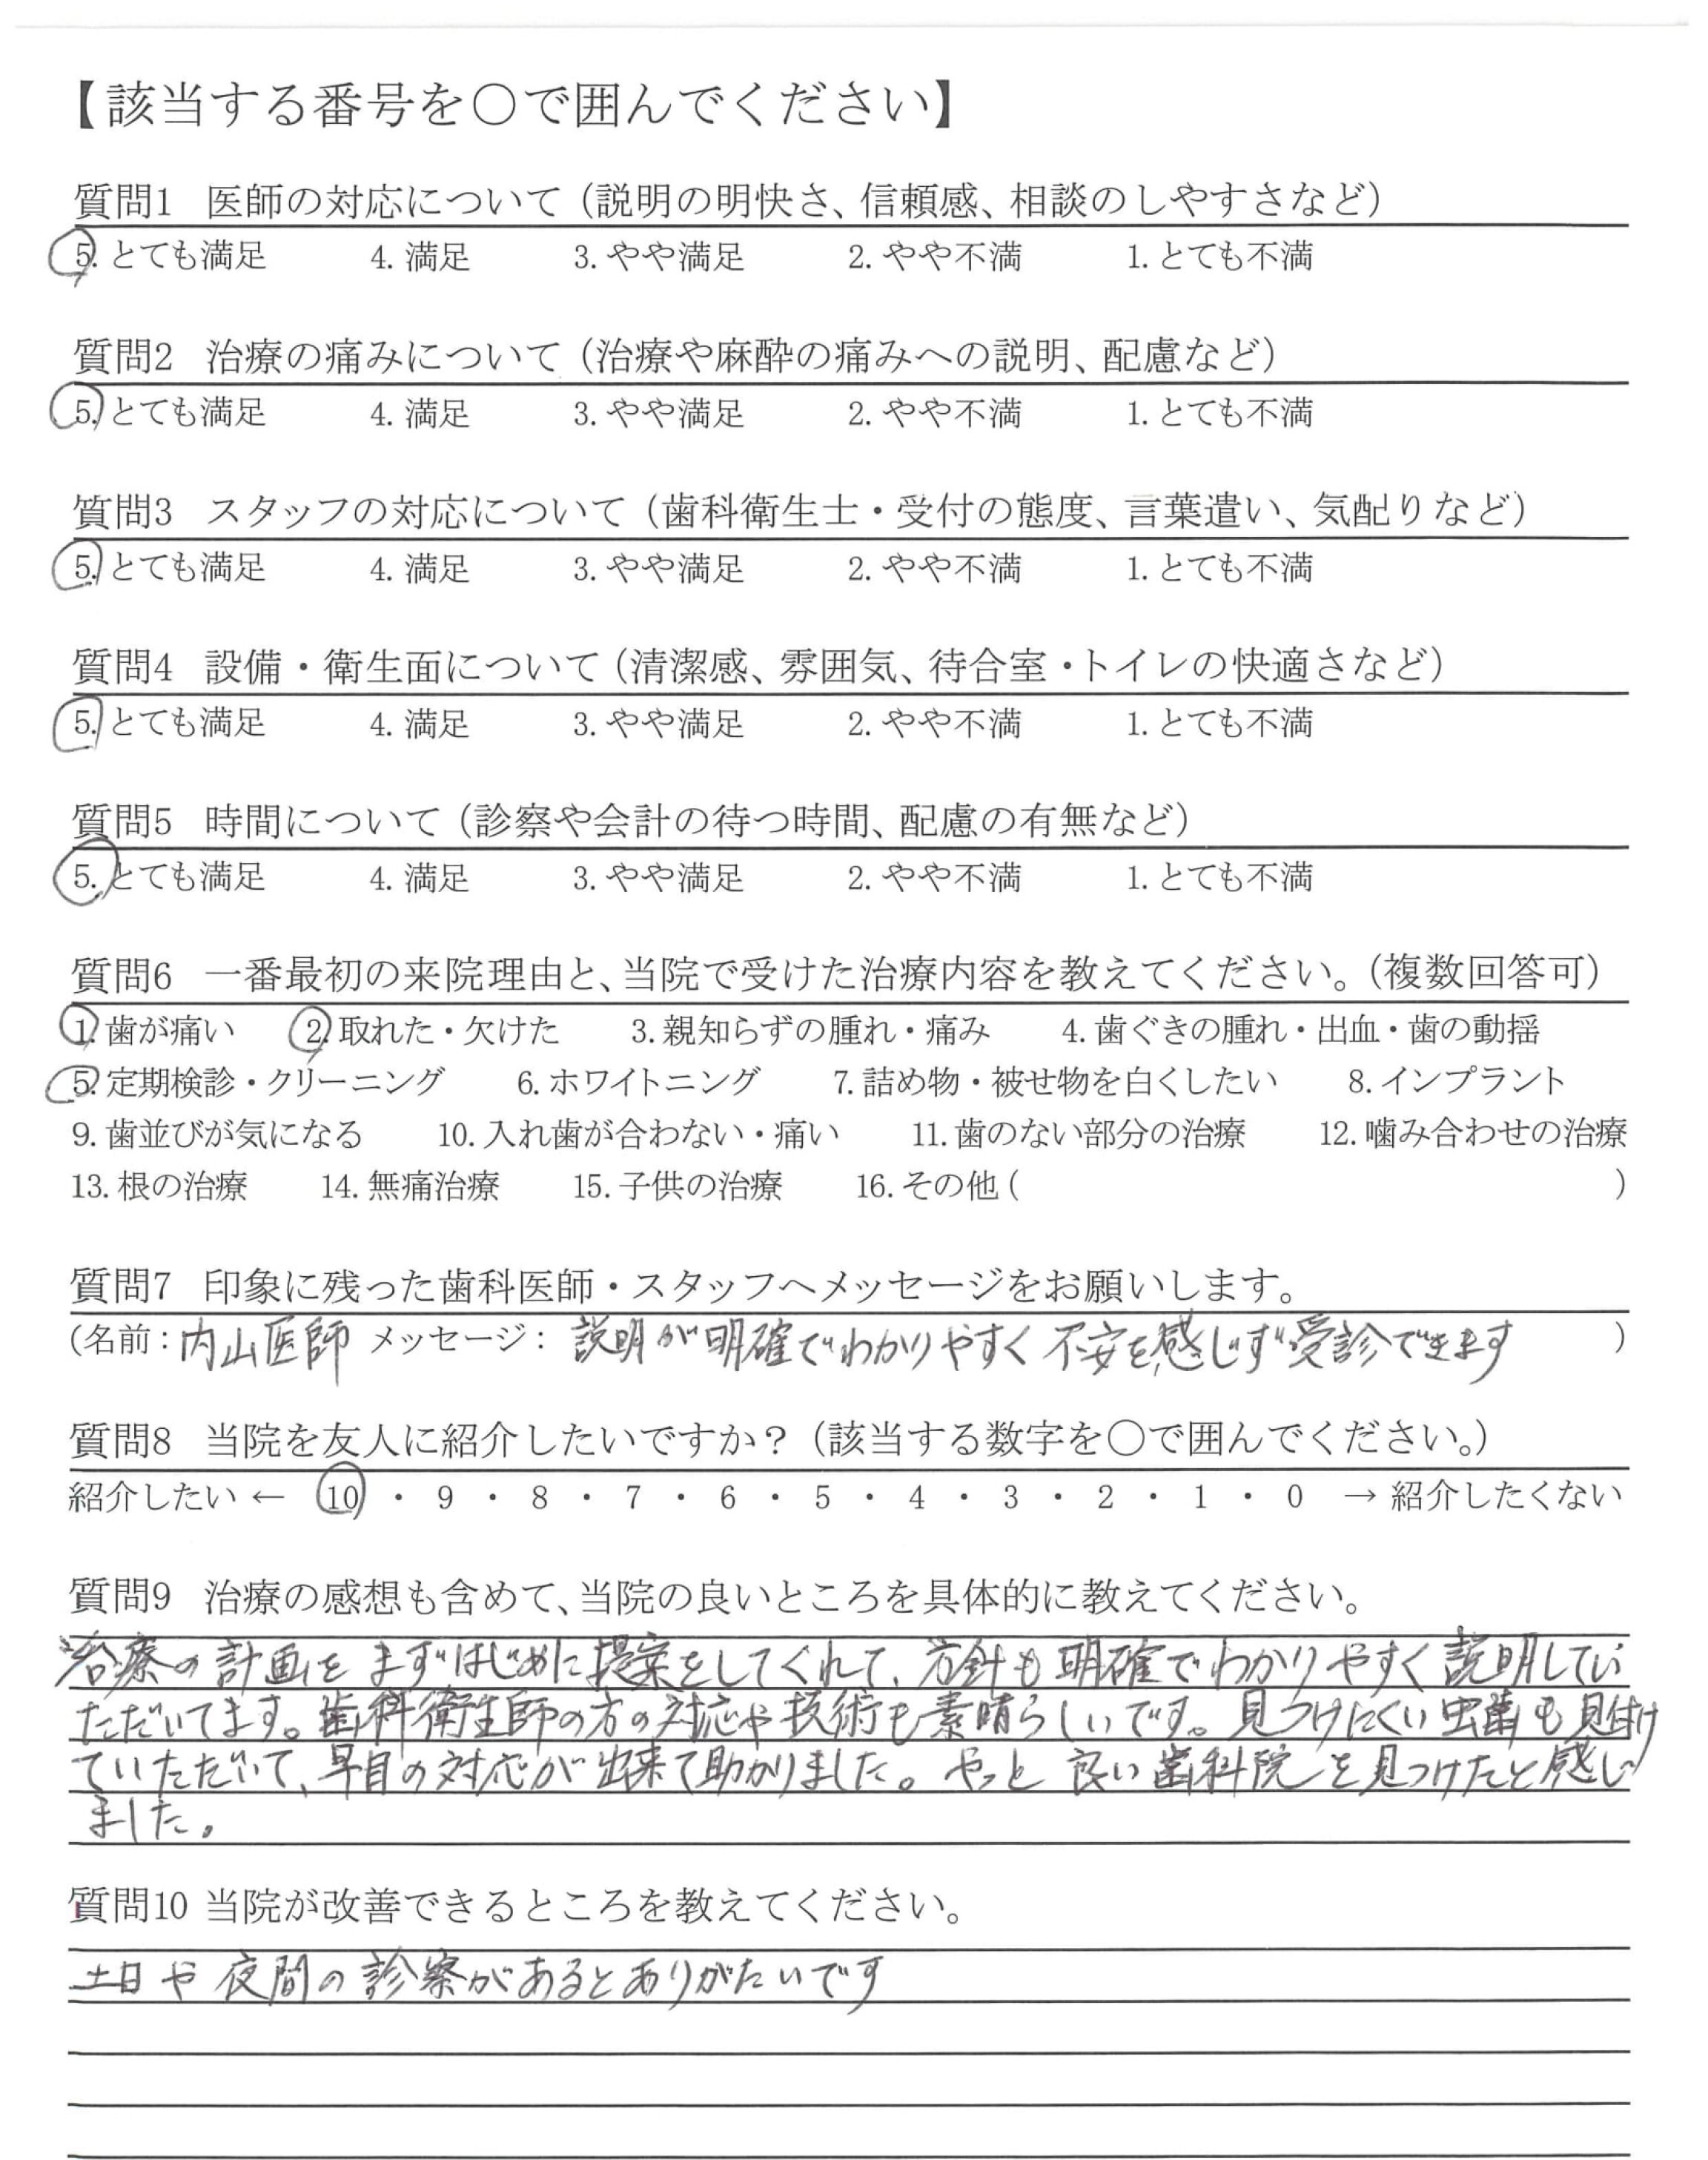 【該当する番号を○で囲んでください】
質問1 医師の対応について（説明の明快さ、信頼感、相談のしやすさなど）
5. とても満足 4. 満足 3. やや満足 2. やや不満 1. とても不満
質問2 治療の痛みについて（治療や麻酔の痛みへの説明、配慮など）
5. とても満足 4. 満足 3. やや満足 2. やや不満 1. とても不満
質問3 スタッフの対応について（歯科衛生士・受付の態度、言葉遣い、気配りなど）
5. とても満足 4. 満足 3. やや満足 2. やや不満 1. とても不満
質問4 設備・衛生面について（清潔感、雰囲気、待合室・トイレの快適さなど）
5. とても満足 4. 満足 3. やや満足 2. やや不満 1. とても不満
質問5 時間について（診察や会計の待つ時間、配慮の有無など）
5. とても満足 4. 満足 3. やや満足 2. やや不満 1. とても不満
質問6 一番最初の来院理由と、当院で受けた治療内容を教えてください。（複数回答可）
1. 歯が痛い 2. 取れた・欠けた 3. 親知らずの腫れ・痛み 4. 歯ぐきの腫れ・出血・歯の動揺
5. 定期検診・クリーニング 6. ホワイトニング 7. 詰め物・被せ物を白くしたい 8. インプラント
9. 歯並びが気になる 10. 入れ歯が合わない・痛い 11. 歯のない部分の治療 12. 噛み合わせの治療
13. 根の治療 14. 無痛治療 15. 子供の治療 16. その他（ ）
質問7 印象に残った歯科医師・スタッフへメッセージをお願いします。
（名前：内山医師 メッセージ： 説明が明確でわかりやすく 不安を感じず受診できます ）
質問8 当院を友人に紹介したいですか？（該当する数字を○で囲んでください。）
紹介したい ← 10 ・ 9 ・ 8 ・ 7 ・ 6 ・ 5 ・ 4 ・ 3 ・ 2 ・ 1 ・ 0 → 紹介したくない
質問9 治療の感想も含めて、当院の良いところを具体的に教えてください。
治療の計画をまずはじめに提案をしてくれて、方針も明確でわかりやすく説明してい
ただいてます。歯科衛生師の方の対応や技術も素晴らしいです。見つけにくい虫歯も見付け
ていただいて、早目の対応が出来て助かりました。やっと良い歯科院を見つけたと感じ
ました。
質問10 当院が改善できるところを教えてください。
土日や夜間の診察があるとありがたいです